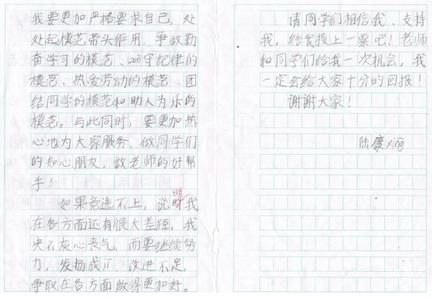 我要更加严格要求自己，处
处起模范带头作用。争做勤
奋学习的模范、遵守纪律的
模范、热爱劳动的模范、团
结同学的模范和助人为乐的
模范。与此同时，要更加热
心地为大家服务，做同学们
的知心朋友，做老师的好帮
手！
如果竞选不上，说明我
在各方面还有很大差距，我
决不灰心丧气，而要继续努
力，发扬成，改进不足，
争取在各方面做得更加好。
请同学们相信我、支持
我，给我投上一票吧！老师
和同学们给我一次机会，我
一定会给大家十分的回报！
谢谢大家！
陆康